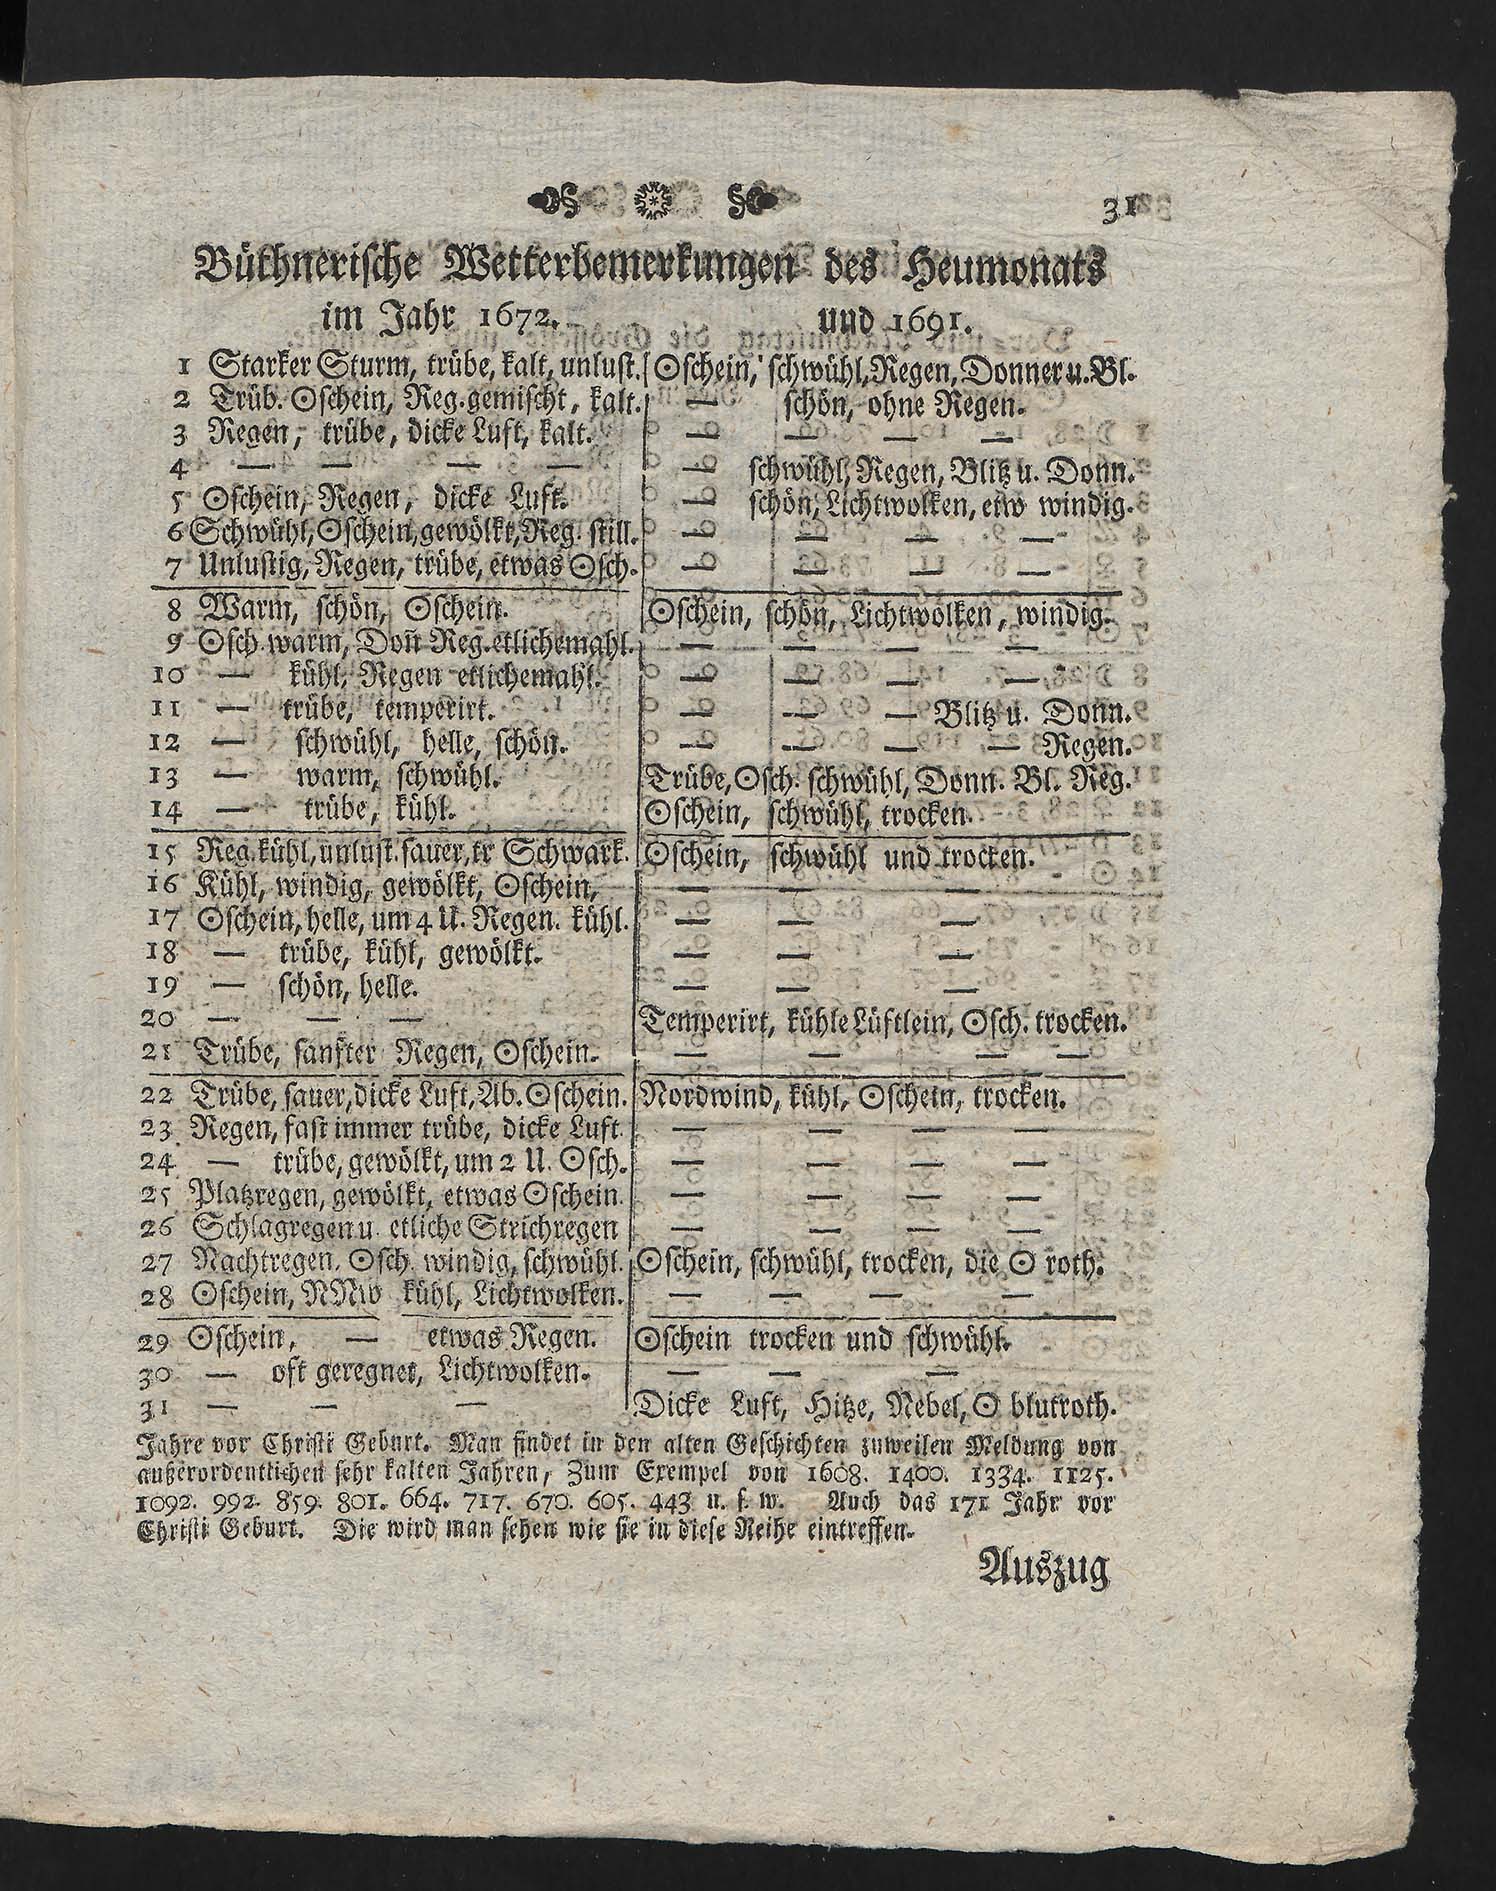 31
Büthnerische Wetterbemerkungen des Heumonats
im Jahr 1672. und 1691.
1 Starker Sturm, trübe, kalt, unlust. ☉schein, schwühl, Regen, Donner u. Bl.
2 Trüb. ☉schein, Reg. gemischt, kalt. — schön, ohne Regen.
3 Regen, trübe, dicke Luft, kalt. — — — —
4 — — — — — schwühl, Regen, Blitz u. Donn.
5 ☉schein, Regen, dicke Luft. — schön, Lichtwolken, etw windig.
6 Schwühl, ☉schein, gewölkt, Reg. still. — — — —
7 Unlustig, Regen, trübe, etwas ☉sch. — — — —
8 Warm, schön, ☉schein. ☉schein, schön, Lichtwolken, windig.
9 ☉sch. warm, Don̄ Reg. etlichemahl. — — — —
10 — kühl, Regen etlichemahl. — — — —
11 — trübe, temperirt. — — — Blitz u. Donn.
12 — schwühl, helle, schön. — — — — Regen.
13 — warm, schwühl. Trübe, ☉sch. schwühl, Donn. Bl. Reg.
14 — trübe, kühl. ☉schein, schwühl, trocken.
15 Reg. kühl, unlust. sauer, tr Schwark. ☉schein, schwühl und trocken.
16 Kühl, windig, gewölkt, ☉schein, — — —
17 ☉schein, helle, um 4 U. Regen. kühl. — — —
18 — trübe, kühl, gewölkt. — — —
19 — schön, helle. — — —
20 — — — Temperirt, kühle Lüftlein, ☉sch. trocken.
21 Trübe, sanfter Regen, ☉schein. — — — —
22 Trübe, sauer, dicke Luft, Ab. ☉schein. Nordwind, kühl, ☉schein, trocken.
23 Regen, fast immer trübe, dicke Luft. — — — —
24 — trübe, gewölkt, um 2 U. ☉sch. — — — —
25 Platzregen, gewölkt, etwas ☉schein. — — — —
26 Schlagregen u. etliche Strichregen — — — —
27 Nachtregen. ☉sch. windig, schwühl. ☉schein, schwühl, trocken, die ☉ roth.
28 ☉schein, NNW kühl, Lichtwolken. — — — —
29 ☉schein, — etwas Regen. ☉schein trocken und schwühl.
30 — oft geregnet, Lichtwolken. — — —
31 — — — Dicke Luft, Hitze, Nebel, ☉ blutroth.
Jahre vor Christi Geburt. Man findet in den alten Geschichten zuweilen Meldung von
außerordentlichen sehr kalten Jahren, Zum Exempel von 1608. 1400. 1334. 1125.
1092. 992. 859. 801. 664. 717. 670. 605. 443 u. s. w. Auch das 171 Jahr vor
Christi Geburt. Die wird man sehen wie sie in diese Reihe eintreffen.
Auszug